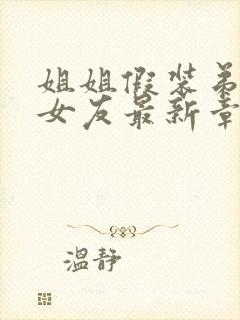 姐姐假装弟
女友最新章
温静